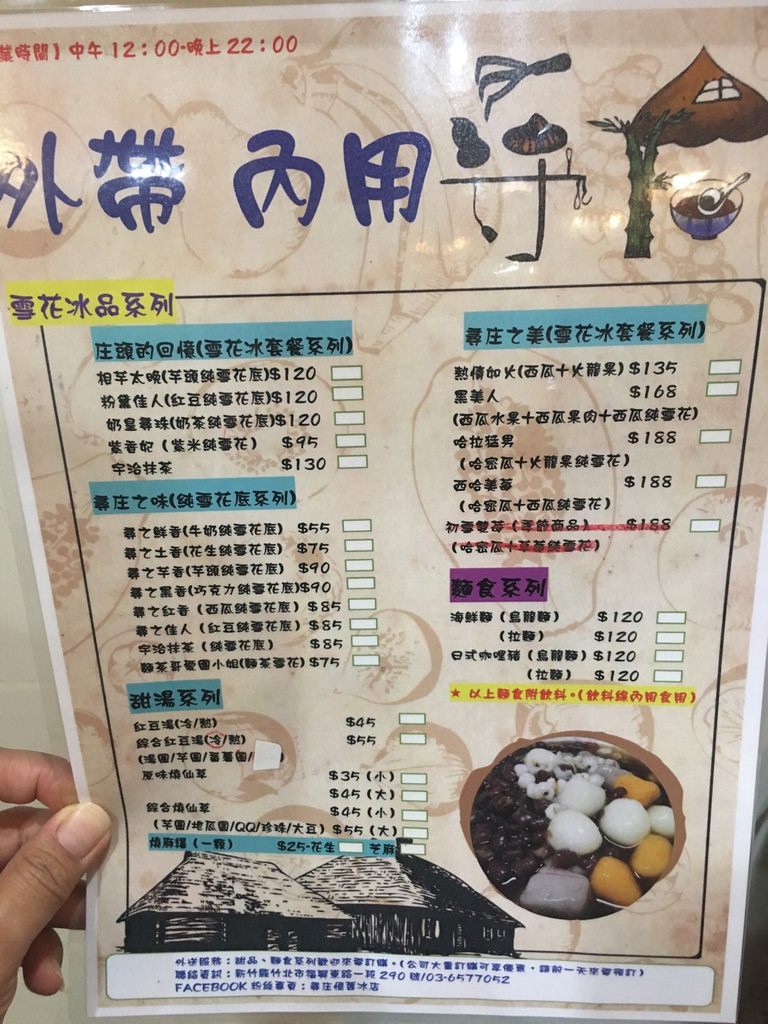 業時間】中午12：00-晚上22：00
外帶 內用
雪花冰品系列
庄頭的回憶(雪花冰套餐系列)
相芋太晚(芋頭純雪花底)$120
粉黛佳人(紅豆純雪花底)$120
奶皇尋珠(奶茶純雪花底)$120
紫香妃（紫米純雪花） $95
宇治抹茶 $130
尋庄之味(純雪花底系列)
尋之鮮香(牛奶純雪花底) $55
尋之土香(花生純雪花底) $75
尋之芋香(芋頭純雪花底) $90
尋之黑香(巧克力純雪花底)$90
尋之紅香（西瓜純雪花底）$85
尋之佳人（紅豆純雪花底）$85
宇治抹茶（純雪花底） $85
麵茶哥愛園小姐(麵茶雪花) $75
甜湯系列
紅豆湯(冷/熱) $45
綜合紅豆湯(冷/熱) $55
(湯圓/芋圓/蕃薯圓/
原味燒仙草 $35（小）
$45（大）
綜合燒仙草 $45（小）
(芋圓/地瓜圓/QQ/珍珠/大豆) $55（大）
燒麻糬（一顆） $25-花生 芝麻
尋庄之美(雪花冰套餐系列)
熱情如火(西瓜+火龍果) $135
黑美人 $168
(西瓜水果+西瓜果肉+西瓜純雪花)
哈拉猛男 $188
（哈密瓜+火龍果純雪花）
西哈美莓 $188
（哈密瓜+西瓜純雪花）
初雪雙莓（季節商品） $188
（哈密瓜+草莓純雪花）
麵食系列
海鮮麵（烏龍麵） $120
（拉麵） $120
日式咖哩豬（烏龍麵）$120
（拉麵） $120
★ 以上麵食附飲料。(飲料線內用食用)
外送服務：甜品、麵食系列歡迎來電訂購。(公司大量訂購可享優惠，請前一天來電預訂)
聯絡資訊：新竹縣竹北市嘉興東路一段290號/03-6577052
FACEBOOK 粉絲專頁：尋庄優質冰店